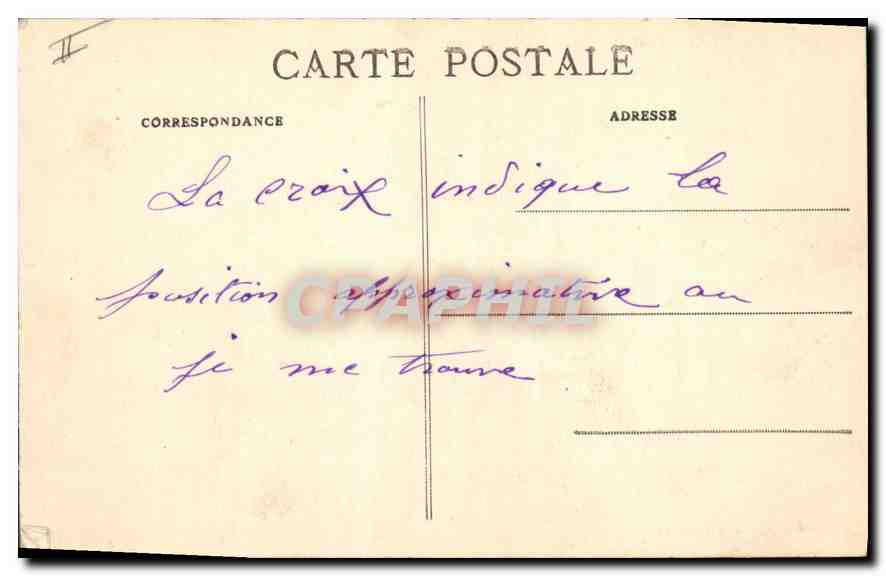 II
CARTE POSTALE
CORRESPONDANCE
ADRESSE
La croix indique la
position approximative ou
je me trouve
CPAPHIL